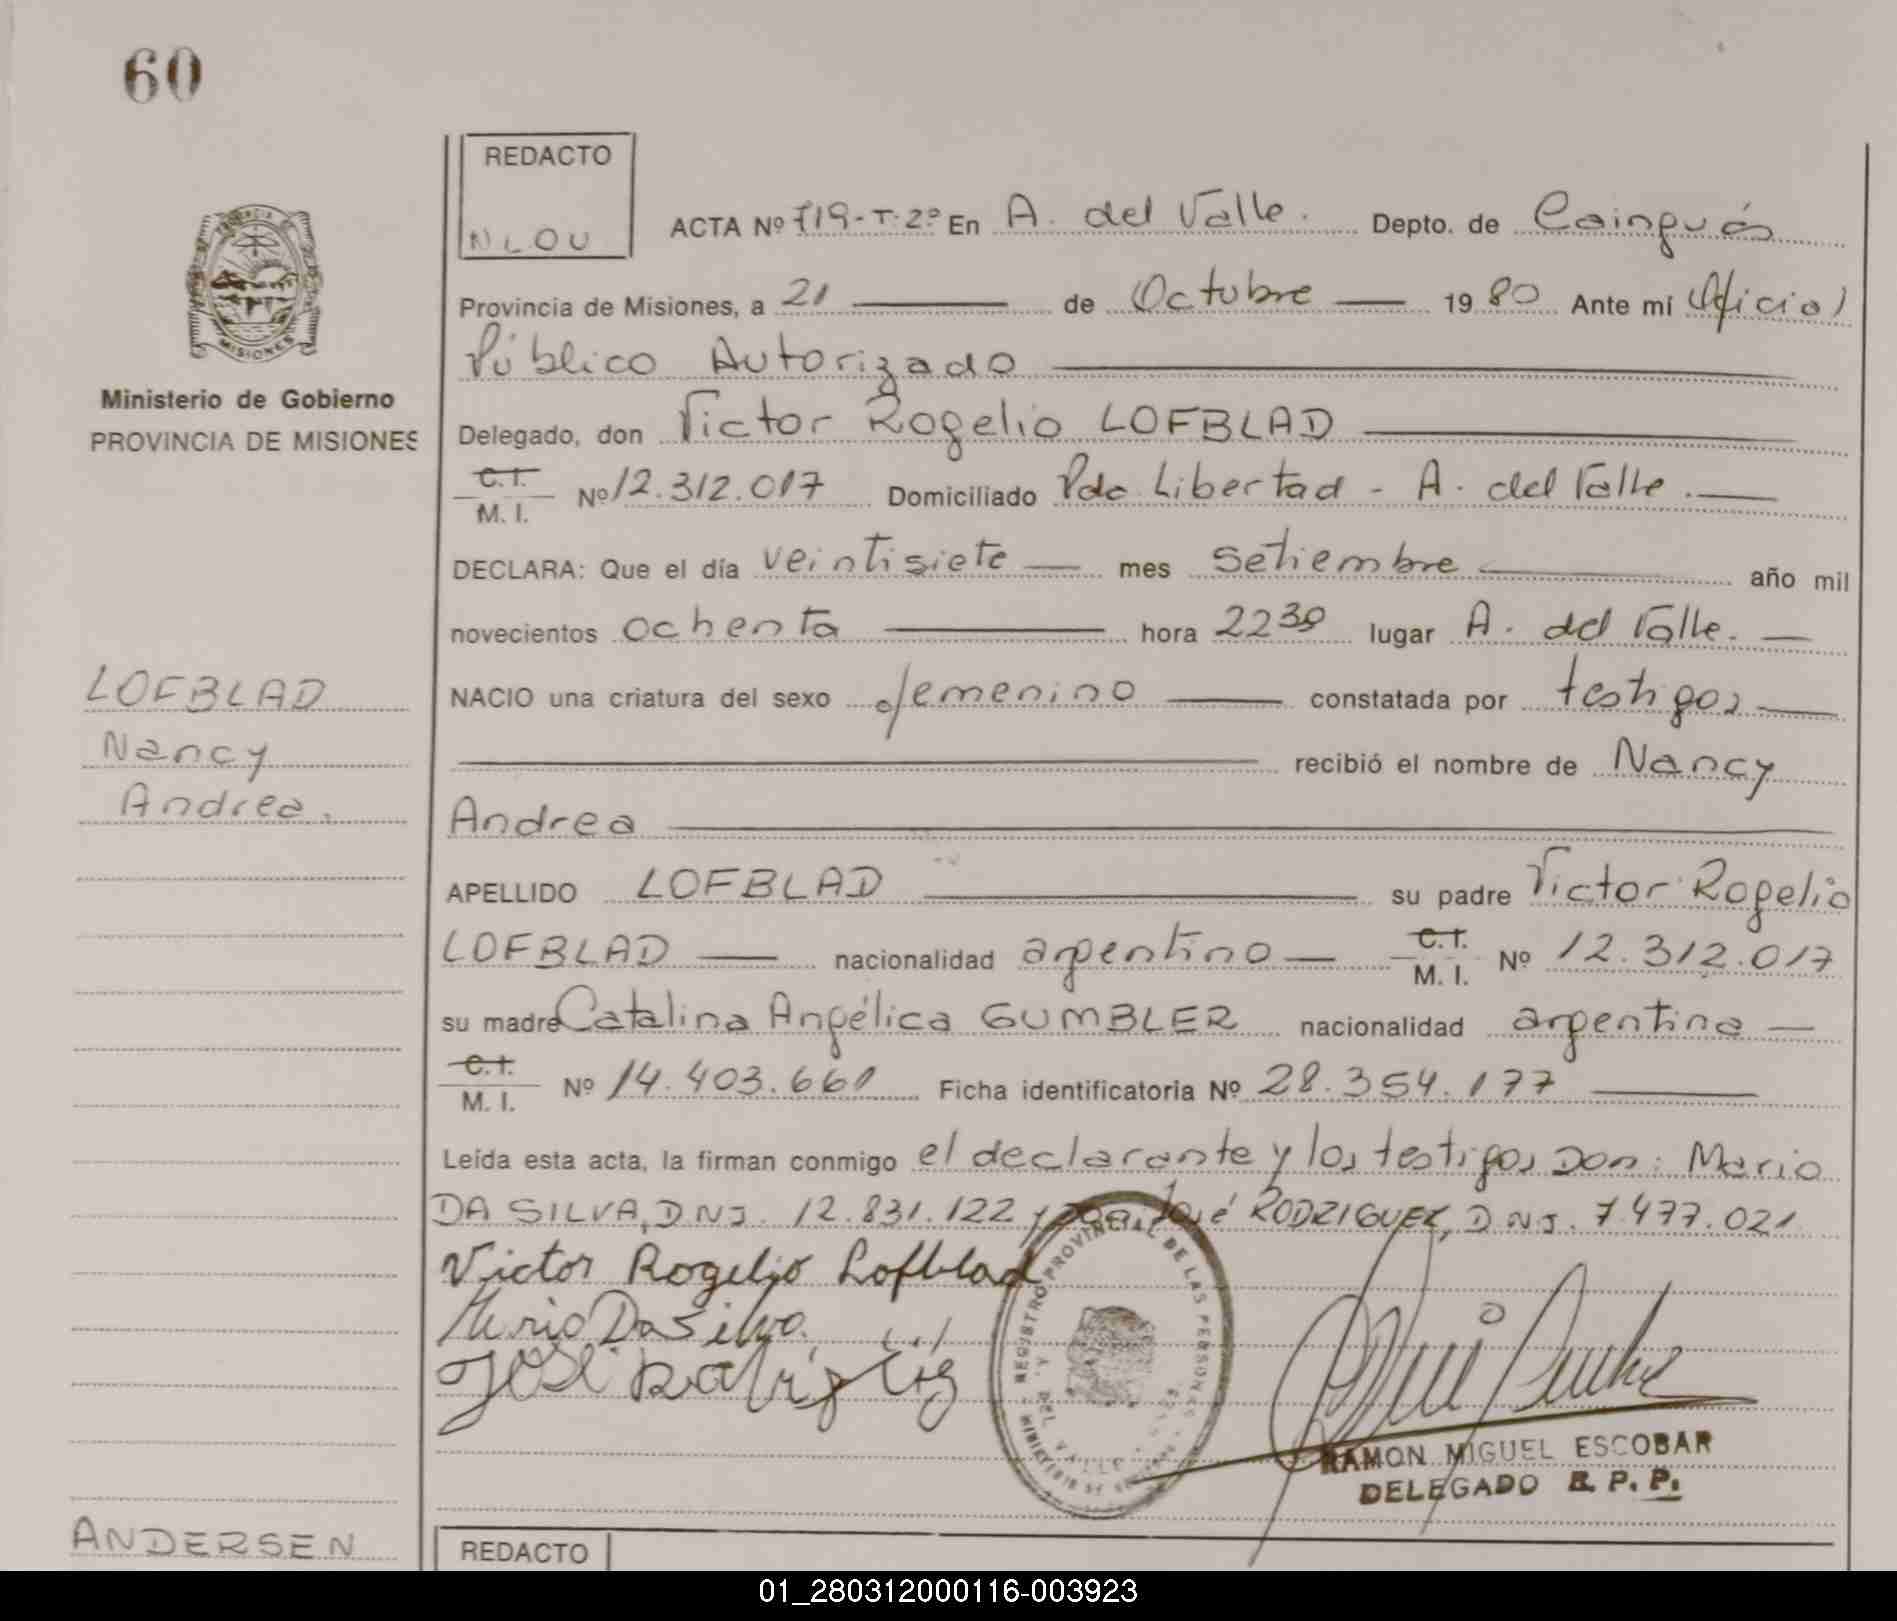 60
REDACTO
NLOU
ACTA Nº 719-T-2º En A. del Valle. Depto. de Cainguás
MISIONES
Provincia de Misiones, a 21 de Octubre 1980 Ante mí Oficial
Público Autorizado
Ministerio de Gobierno
PROVINCIA DE MISIONES
Delegado, don Victor Rogelio LOFBLAD
C.I.
M. I. Nº 12.312.017 Domiciliado Pdo. Libertad - A. del Valle.
DECLARA: Que el día veintisiete mes setiembre año mil
novecientos ochenta hora 22 30 lugar A. del Valle.
LOFBLAD
Nancy
Andrea.
NACIO una criatura del sexo femenino constatada por testigos
recibió el nombre de Nancy
Andrea
APELLIDO LOFBLAD su padre Victor Rogelio
LOFBLAD nacionalidad argentino C.I. M. I. Nº 12.312.017
su madre Catalina Angélica GUMBLER nacionalidad argentina
C.I.
M. I. Nº 14.403.661 Ficha identificatoria Nº 28.354.177
Leída esta acta, la firman conmigo el declarante y los testigos Don: Mario
DA SILVA, DNJ. 12.831.122 y Don José RODRIGUEZ, D.N.J. 7.477.021
Victor Rogelio Lofblad
Mario Da Silva
José
REGISTRO PROVINCIAL DE LAS PERSONAS
DEL VALLE
RAMON MIGUEL ESCOBAR
DELEGADO R. P. P.
ANDERSEN
REDACTO
01_280312000116-003923